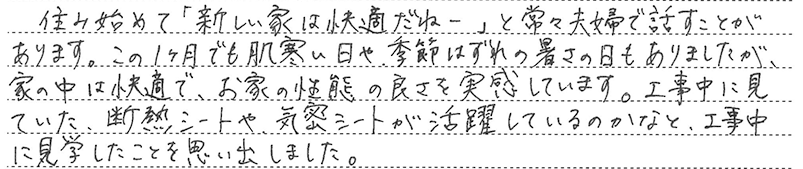 住み始めて「新しい家は快適だねー」と常々夫婦で話すことが
あります。この1ヶ月でも肌寒い日や、季節はずれの暑さの日もありましたが、
家の中は快適で、お家の性態の良さを実感しています。工事中に見
ていた、断熱シートや、気密シートが活躍しているのかなと、工事中
に見学したことを思い出しました。